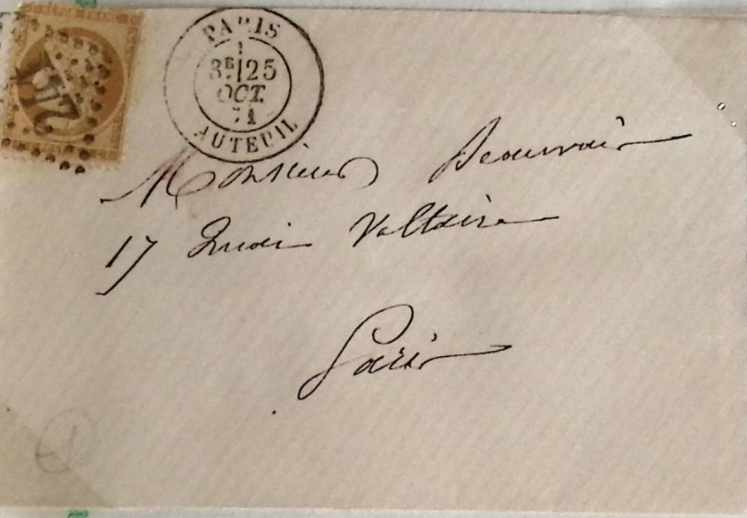 PARIS
3E 25
OCT.
71
AUTEUIL
Monsieur Beauvais
17 Quai Voltaire
Paris